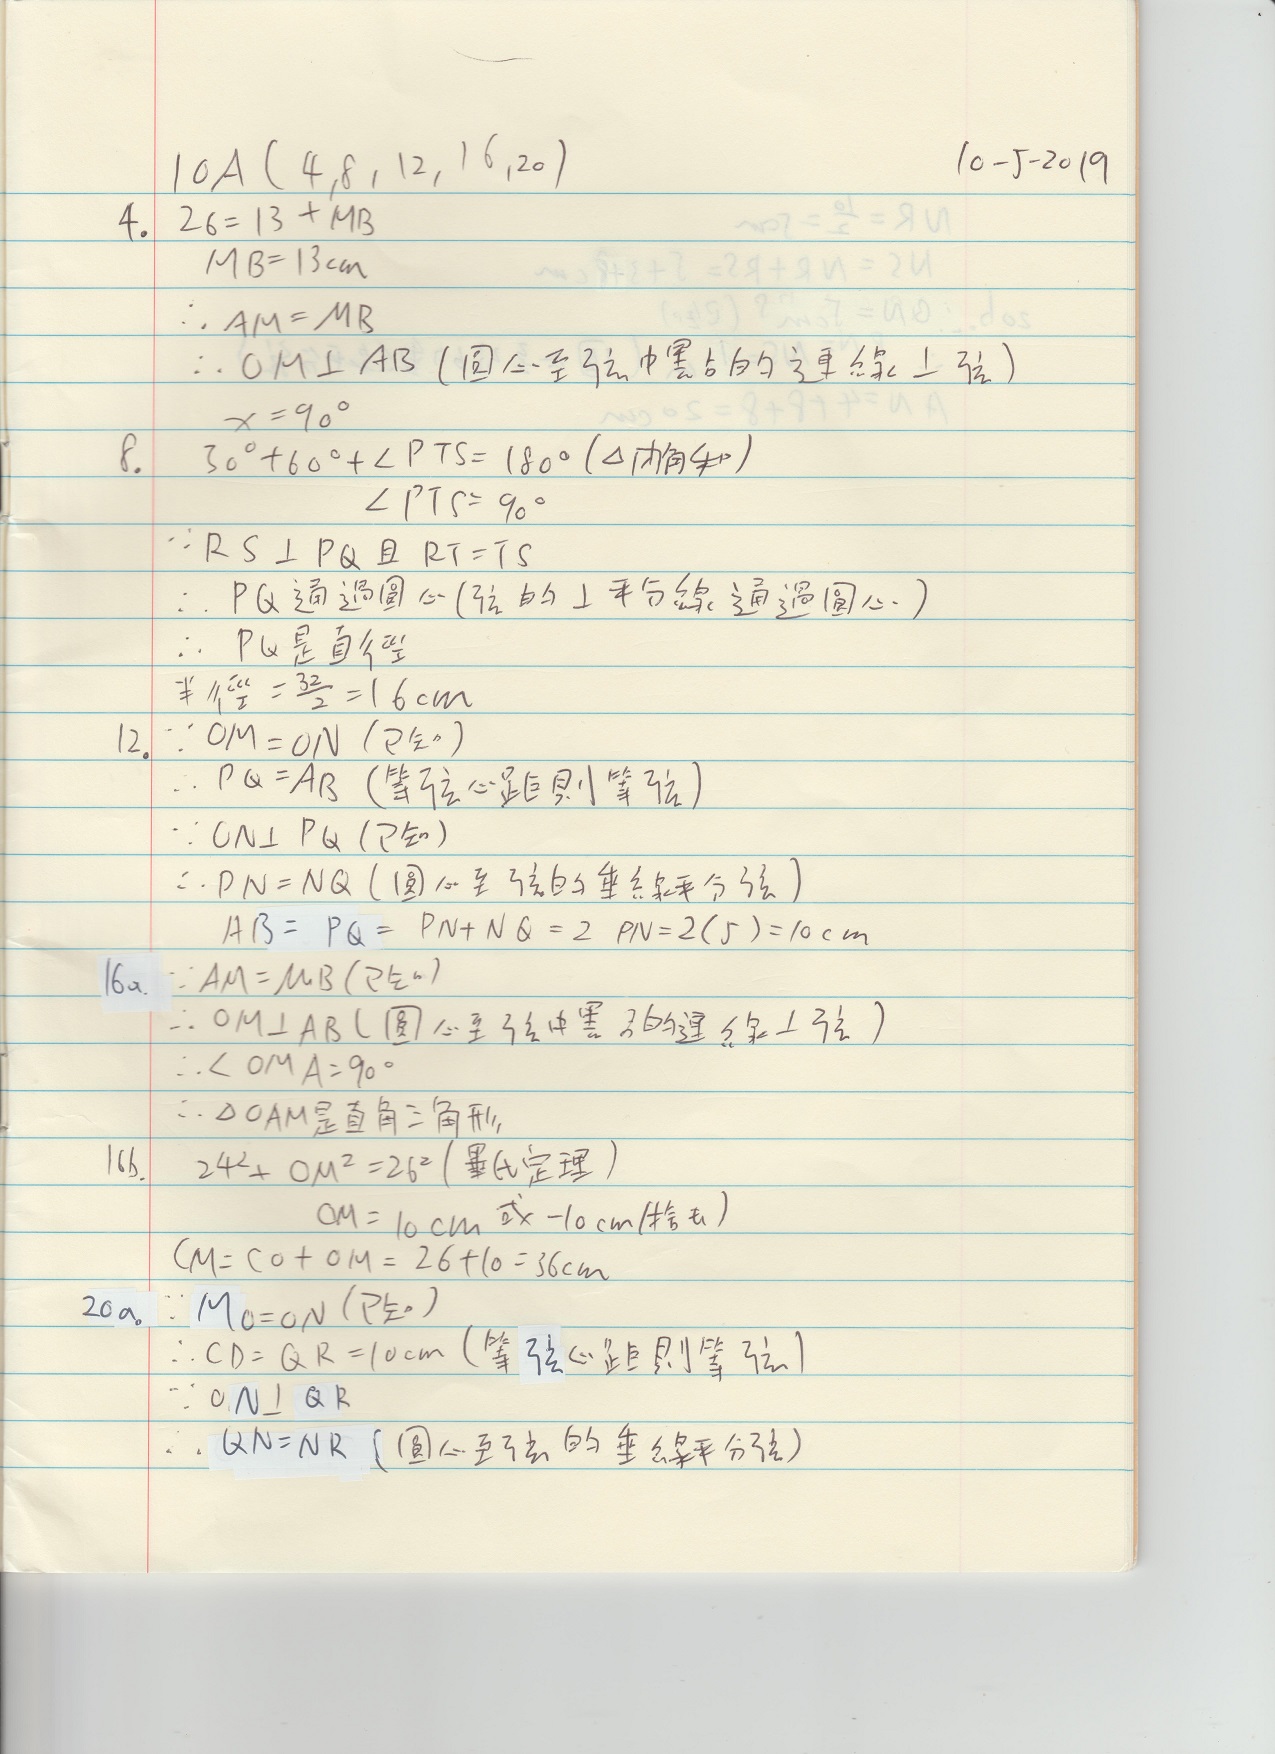 10A (4,8,12,16,20) 10-5-2019
4. 26=13+MB
MB=13cm
∴ AM=MB
∴ OM⊥AB (圓心至弦中點的連線⊥弦)
x=90°
8. 30°+60°+∠PTS=180° (△內角和)
∠PTS=90°
∵ RS⊥PQ且RT=TS
∴ PQ通過圓心(弦的⊥平分線通過圓心)
∴ PQ是直徑
半徑=32/2=16cm
12. ∵ OM=ON (已知)
∴ PQ=AB (等弦心距則等弦)
∵ ON⊥PQ (已知)
∴ PN=NQ (圓心至弦的垂線平分弦)
AB=PQ=PN+NQ=2PN=2(5)=10cm
16a. ∵ AM=MB (已知)
∴ OM⊥AB (圓心至弦中點的連線⊥弦)
∴ ∠OMA=90°
∴ △OAM是直角三角形
16b. 24²+OM²=26² (畢氏定理)
OM=10cm或-10cm(捨去)
CM=CO+OM=26+10=36cm
20a. ∵ MO=ON (已知)
∴ CD=QR=10cm (等弦心距則等弦)
∵ ON⊥QR
∴ QN=NR (圓心至弦的垂線平分弦)